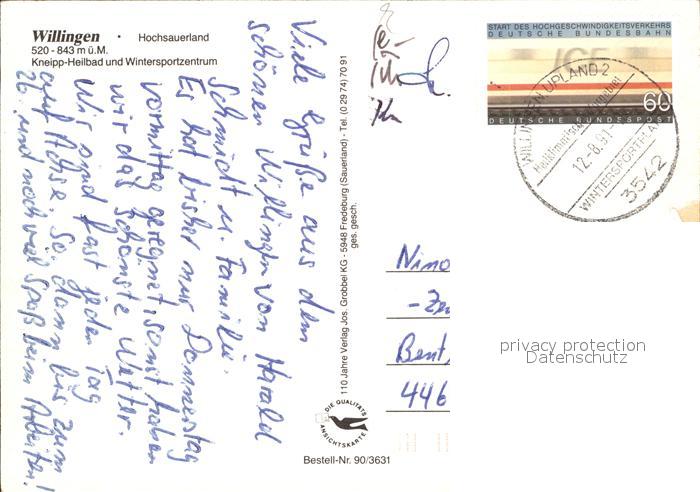 Willingen · Hochsauerland
520 - 843 m ü.M.
Kneipp-Heilbad und Wintersportzentrum
Viele Grüße aus dem
schönen Willingen von Harald
Schmidt u. Familie.
Es hat bisher nur Donnerstag
vormittag geregnet, sonst haben
wir das schönste Wetter.
Wir sind fast jeden Tag
auf Achse. So, dann bis zum
26. und noch viel Spaß beim Arbeiten!
110 Jahre Verlag Jos. Grobbel KG - 5948 Fredeburg (Sauerland) - Tel. (0 29 74) 70 91
ges. gesch.
DIE QUALITÄTS
ANSICHTSKARTE
Bestell-Nr. 90/3631
START DES HOCHGESCHWINDIGKEITSVERKEHRS
DEUTSCHE BUNDESBAHN
ICE
60
DEUTSCHE BUNDESPOST
WILLINGEN, UPLAND 2
Heilklimatisches
12.-8.91-
WINTERSPORTPLATZ
3542
Nimo
-Ze
Bent
446
privacy protection
Datenschutz